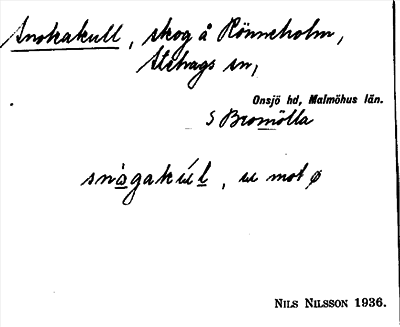 Snokakull, skog å Rönneholm,
Stehags sn,
Onsjö hd, Malmöhus län.
S Bromölla
snågakul, u mot ø
NILS NILSSON 1936.